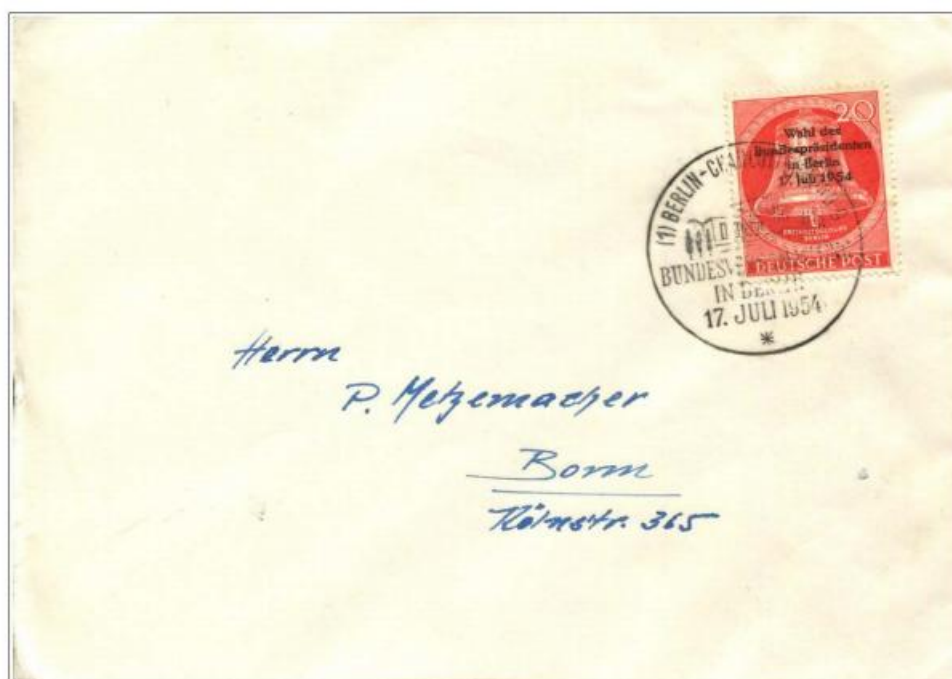 20
Wahl des
Bundespräsidenten
in Berlin
17. Juli 1954
FREIHEITSGLOCKE
BERLIN
DEUTSCHE POST
(1) BERLIN-
IN BERLIN
17. JULI 1954
Herrn
P. Metzemacher
Bonn
Kölnstr. 365